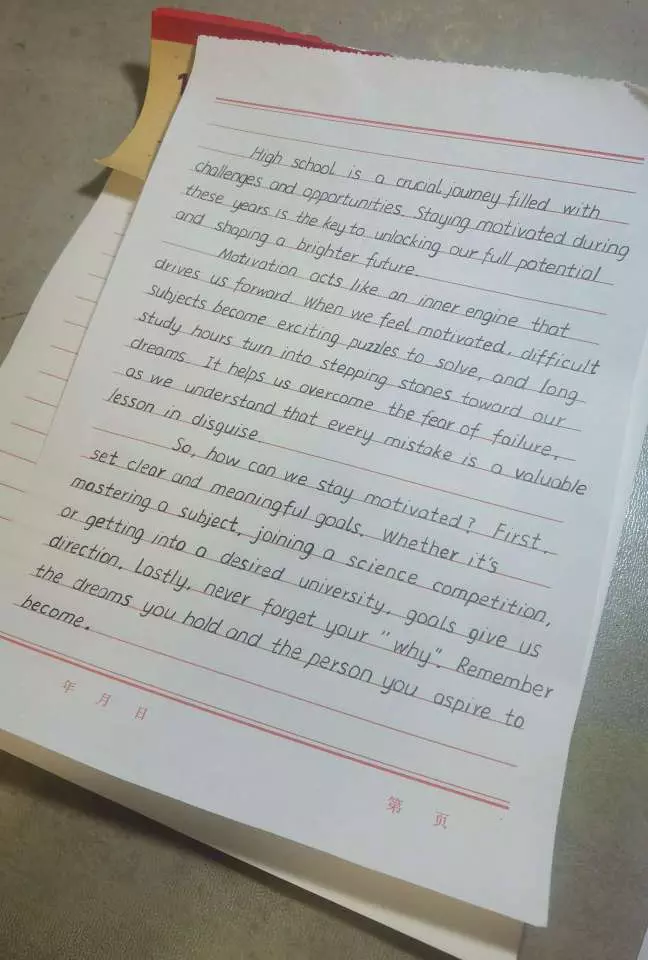 High school is a crucial journey filled with
challenges and opportunities. Staying motivated during
these years is the key to unlocking our full potential
and shaping a brighter future.
Motivation acts like an inner engine that
drives us forward. When we feel motivated, difficult
subjects become exciting puzzles to solve, and long
study hours turn into stepping stones toward our
dreams. It helps us overcome the fear of failure,
as we understand that every mistake is a valuable
lesson in disguise.
So, how can we stay motivated? First,
set clear and meaningful goals. Whether it's
mastering a subject, joining a science competition,
or getting into a desired university, goals give us
direction. Lastly, never forget your "why". Remember
the dreams you hold and the person you aspire to
become.
年 月 日
第 页